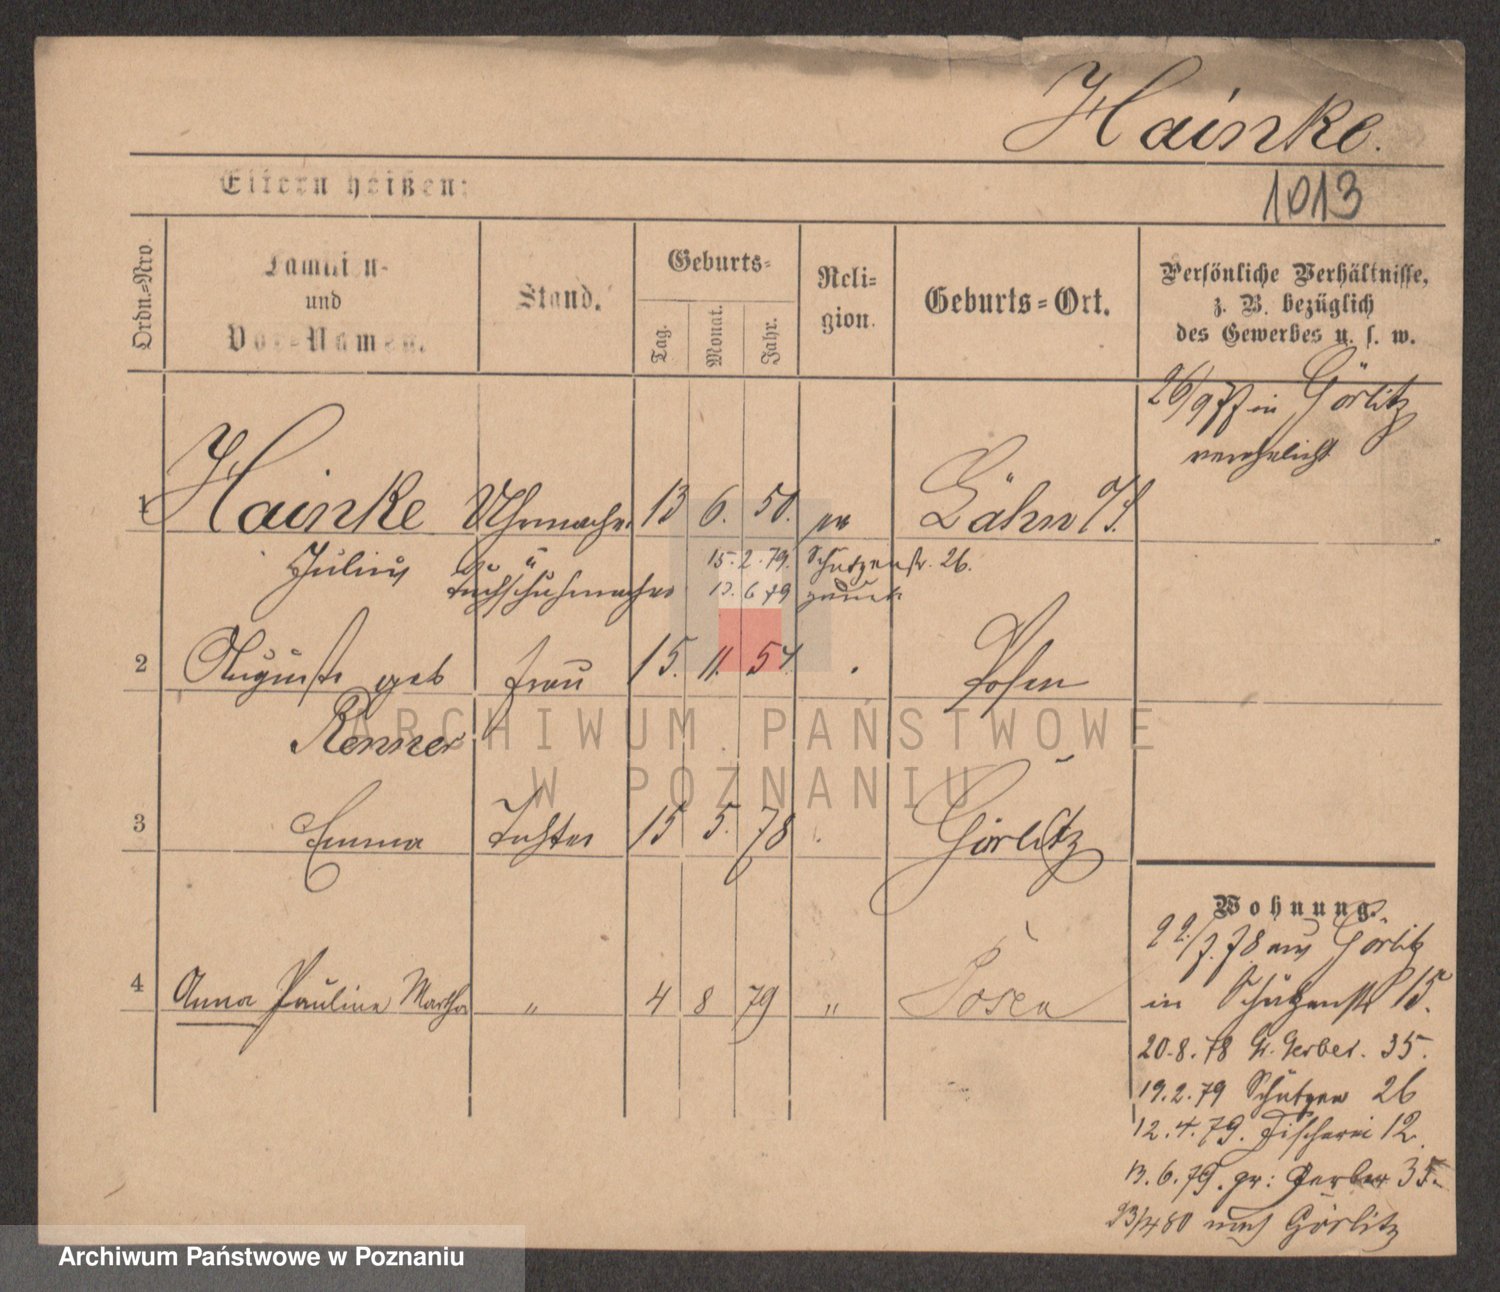 Hainke.
Eltern heißen:
1013
Ordn.-Nro.
Familien-
und
Vor-Namen.
Stand.
Geburts-
Tag.
Monat.
Jahr.
Reli-
gion.
Geburts-Ort.
Persönliche Verhältnisse,
z. B. bezüglich
des Gewerbes u. s. w.
26/9 77 in Görlitz
verehelicht
1 Hainke Uhrmacher 13 6. 50. ev Lähn
Julius 15. 2. 79. Schützenstr. 26.
13. 6 79 zurück
2 Auguste geb Frau 15. 11. 54. Posen
Renner
3 Emma Tochter 15 5. 78 Görlitz
4 Anna Pauline Martha " 4 8 79 " Posen
Wohnung.
22./7. 78 aus Görlitz
in Schützenstr 15.
20. 8. 78 Gr. Gerber. 35.
19. 2. 79 Schützen 26
12. 4. 79. Fischerei 12.
13. 6. 79. gr: Gerber 35.
23/4 80 nach Görlitz
ARCHIWUM PAŃSTWOWE
W POZNANIU
Archiwum Państwowe w Poznaniu